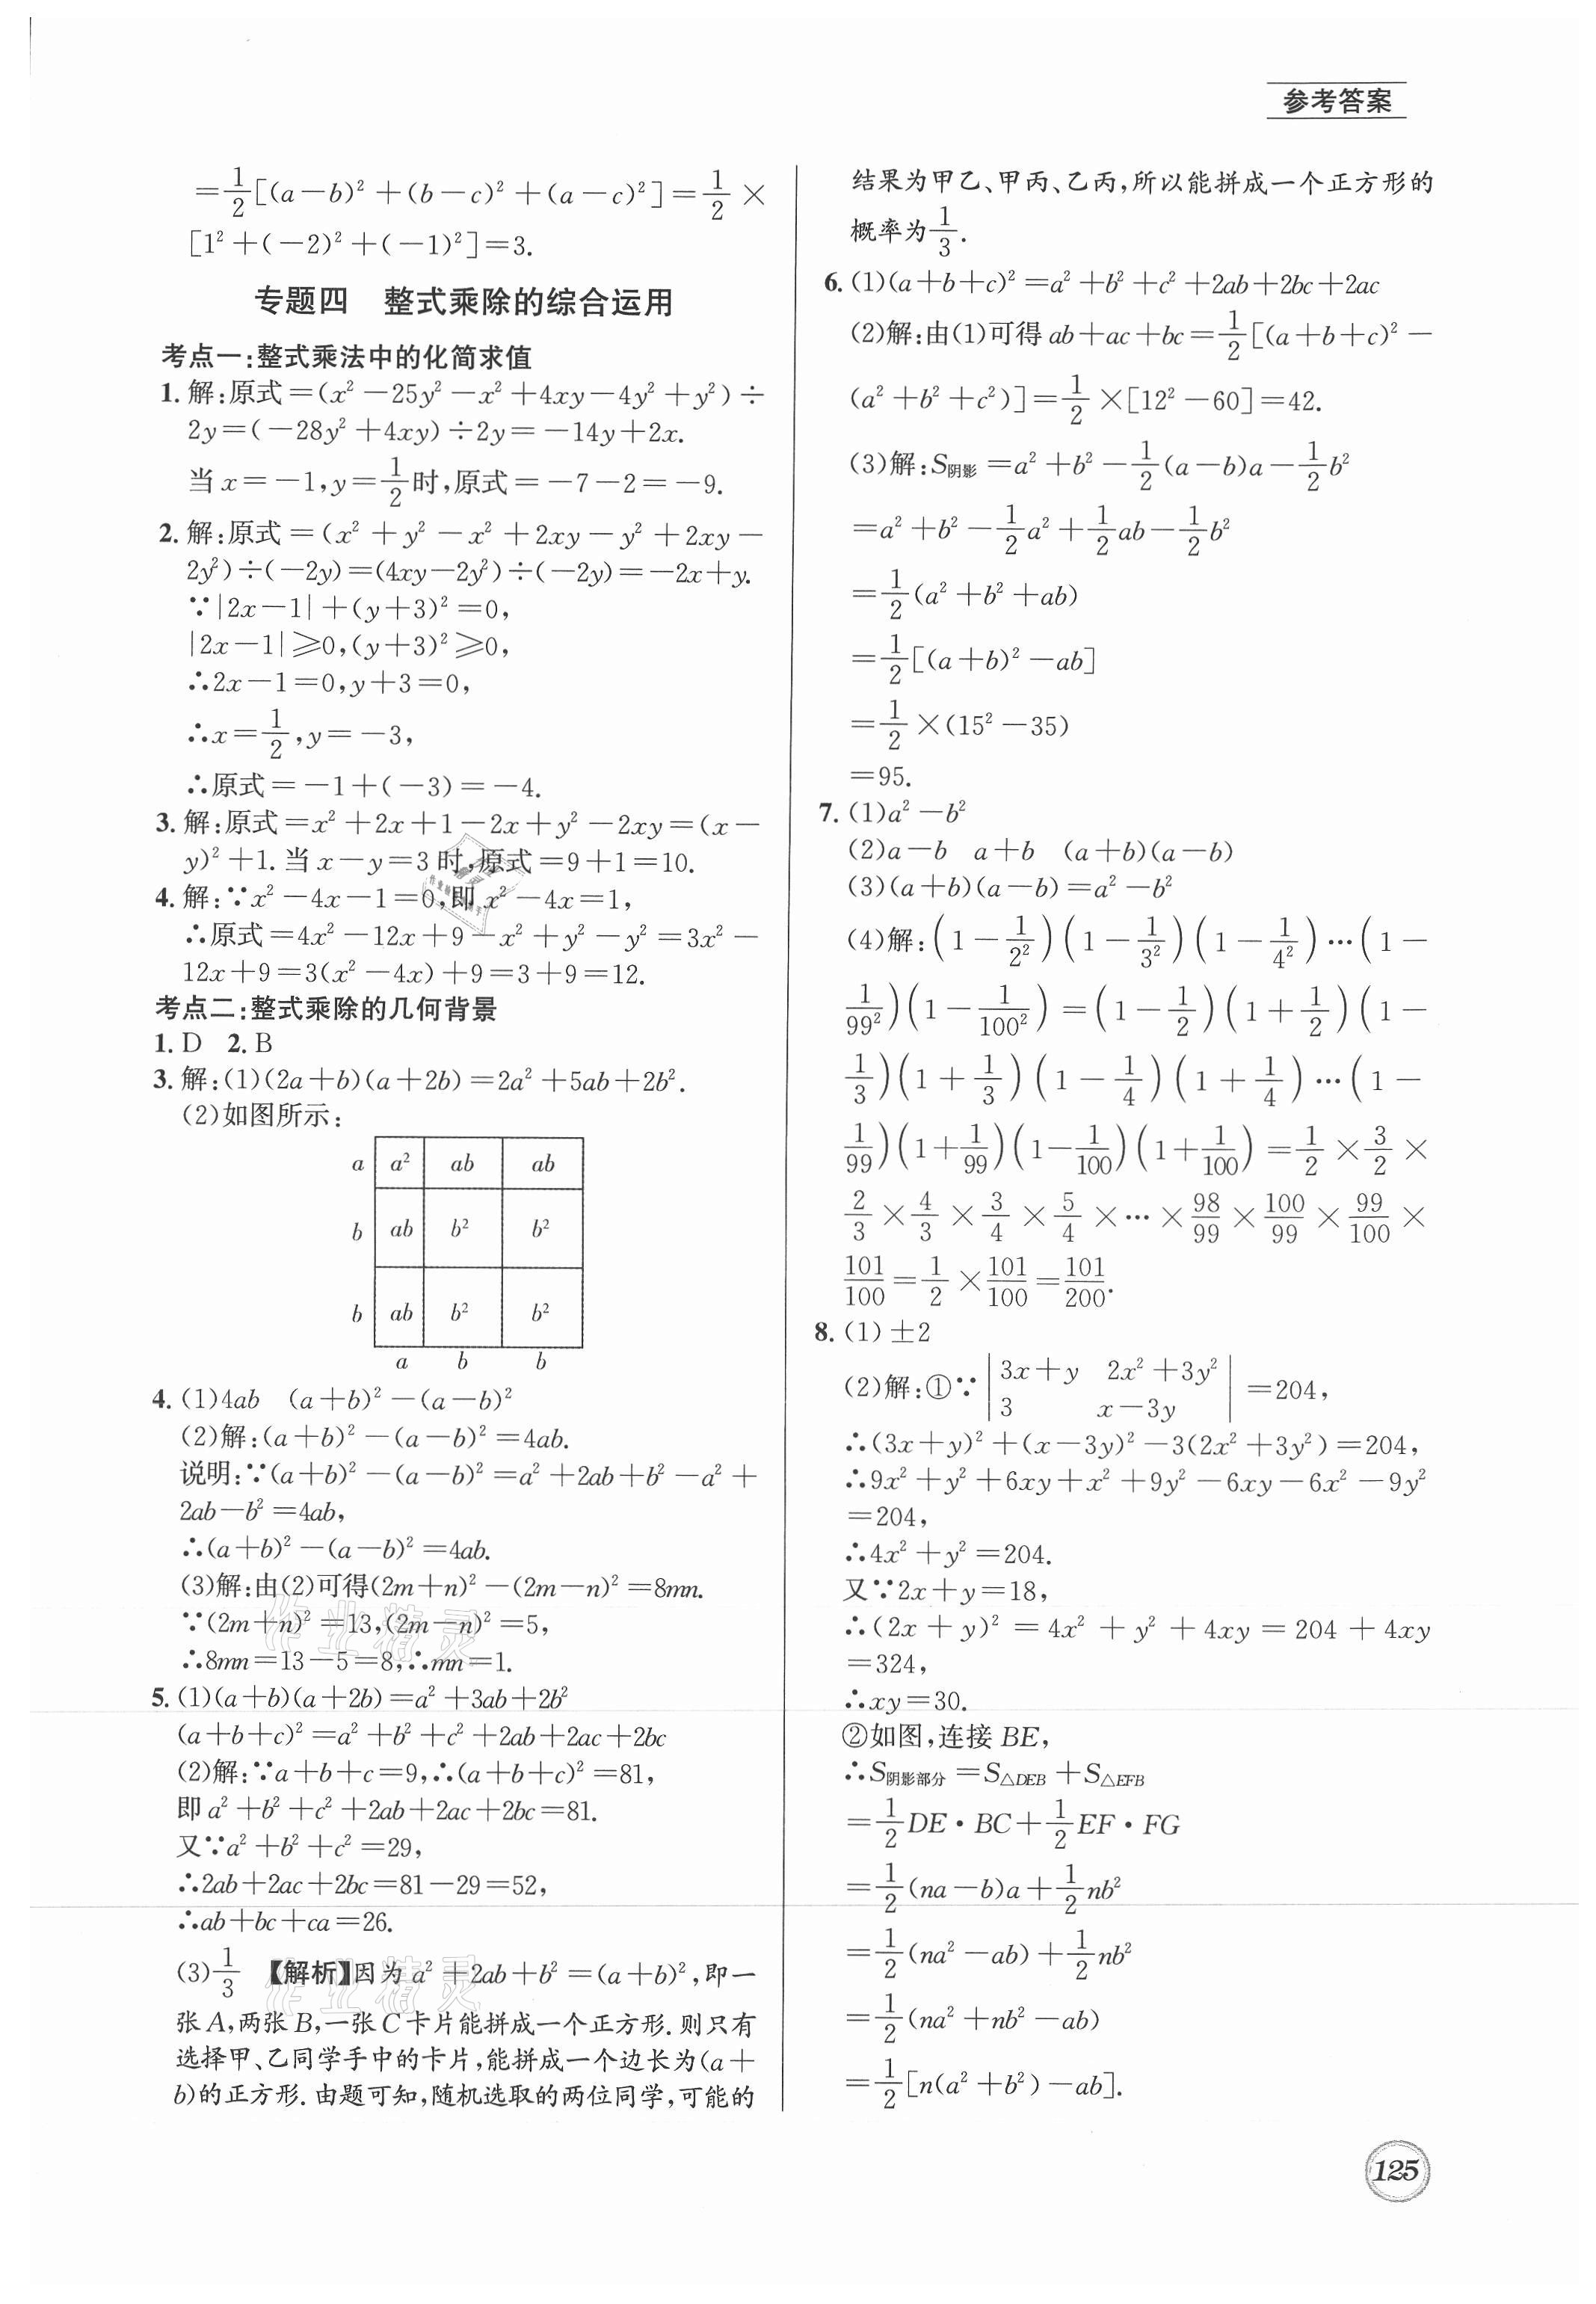 参考答案
=\frac{1}{2}[(a-b)²+(b-c)²+(a-c)²]=\frac{1}{2}×
[1²+(-2)²+(-1)²]=3.
专题四 整式乘除的综合运用
考点一:整式乘法中的化简求值
1. 解:原式=(x²-25y²-x²+4xy-4y²+y²)÷
2y=(-28y²+4xy)÷2y=-14y+2x.
当x=-1,y=\frac{1}{2}时,原式=-7-2=-9.
2. 解:原式=(x²+y²-x²+2xy-y²+2xy-
2y²)÷(-2y)=(4xy-2y²)÷(-2y)=-2x+y.
∵|2x-1|+(y+3)²=0,
|2x-1|≥0,(y+3)²≥0,
∴2x-1=0,y+3=0,
∴x=\frac{1}{2},y=-3,
∴原式=-1+(-3)=-4.
3. 解:原式=x²+2x+1-2x+y²-2xy=(x-
y)²+1.当x-y=3时,原式=9+1=10.
4. 解:∵x²-4x-1=0,即x²-4x=1,
∴原式=4x²-12x+9-x²+y²-y²=3x²-
12x+9=3(x²-4x)+9=3+9=12.
考点二:整式乘除的几何背景
1. D 2. B
3. 解:(1)(2a+b)(a+2b)=2a²+5ab+2b².
(2)如图所示:
a a² ab ab
b ab b² b²
b ab b² b²
a b b
4. (1)4ab (a+b)²-(a-b)²
(2)解:(a+b)²-(a-b)²=4ab.
说明:∵(a+b)²-(a-b)²=a²+2ab+b²-a²+
2ab-b²=4ab,
∴(a+b)²-(a-b)²=4ab.
(3)解:由(2)可得(2m+n)²-(2m-n)²=8mn.
∵(2m+n)²=13,(2m-n)²=5,
∴8mn=13-5=8,∴mn=1.
5. (1)(a+b)(a+2b)=a²+3ab+2b²
(a+b+c)²=a²+b²+c²+2ab+2ac+2bc
(2)解:∵a+b+c=9,∴(a+b+c)²=81,
即a²+b²+c²+2ab+2ac+2bc=81.
又∵a²+b²+c²=29,
∴2ab+2ac+2bc=81-29=52,
∴ab+bc+ca=26.
(3)\frac{1}{3} 【解析】因为a²+2ab+b²=(a+b)²,即一
张A,两张B,一张C卡片能拼成一个正方形.则只有
选择甲、乙同学手中的卡片,能拼成一个边长为(a+
b)的正方形.由题可知,随机选取的两位同学,可能的
结果为甲乙、甲丙、乙丙,所以能拼成一个正方形的
概率为\frac{1}{3}.
6. (1)(a+b+c)²=a²+b²+c²+2ab+2bc+2ac
(2)解:由(1)可得ab+ac+bc=\frac{1}{2}[(a+b+c)²-
(a²+b²+c²)]=\frac{1}{2}×[12²-60]=42.
(3)解:S阴影=a²+b²-\frac{1}{2}(a-b)a-\frac{1}{2}b²
=a²+b²-\frac{1}{2}a²+\frac{1}{2}ab-\frac{1}{2}b²
=\frac{1}{2}(a²+b²+ab)
=\frac{1}{2}[(a+b)²-ab]
=\frac{1}{2}×(15²-35)
=95.
7. (1)a²-b²
(2)a-b a+b (a+b)(a-b)
(3)(a+b)(a-b)=a²-b²
(4)解:(1-\frac{1}{2²})(1-\frac{1}{3²})(1-\frac{1}{4²})…(1-
\frac{1}{99²})(1-\frac{1}{100²})=(1-\frac{1}{2})(1+\frac{1}{2})(1-
\frac{1}{3})(1+\frac{1}{3})(1-\frac{1}{4})(1+\frac{1}{4})…(1-
\frac{1}{99})(1+\frac{1}{99})(1-\frac{1}{100})(1+\frac{1}{100})=\frac{1}{2}×\frac{3}{2}×
\frac{2}{3}×\frac{4}{3}×\frac{3}{4}×\frac{5}{4}×…×\frac{98}{99}×\frac{100}{99}×\frac{99}{100}×
\frac{101}{100}=\frac{1}{2}×\frac{101}{100}=\frac{101}{200}.
8. (1)±2
(2)解:①∵|3x+y 2x²+3y²|
|3 x-3y|=204,
∴(3x+y)²+(x-3y)²-3(2x²+3y²)=204,
∴9x²+y²+6xy+x²+9y²-6xy-6x²-9y²
=204,
∴4x²+y²=204.
又∵2x+y=18,
∴(2x+y)²=4x²+y²+4xy=204+4xy
=324,
∴xy=30.
②如图,连接BE,
∴S阴影部分=S△DEB+S△EFB
=\frac{1}{2}DE·BC+\frac{1}{2}EF·FG
=\frac{1}{2}(na-b)a+\frac{1}{2}nb²
=\frac{1}{2}(na²-ab)+\frac{1}{2}nb²
=\frac{1}{2}(na²+nb²-ab)
=\frac{1}{2}[n(a²+b²)-ab].
作业精灵
作业精灵
125